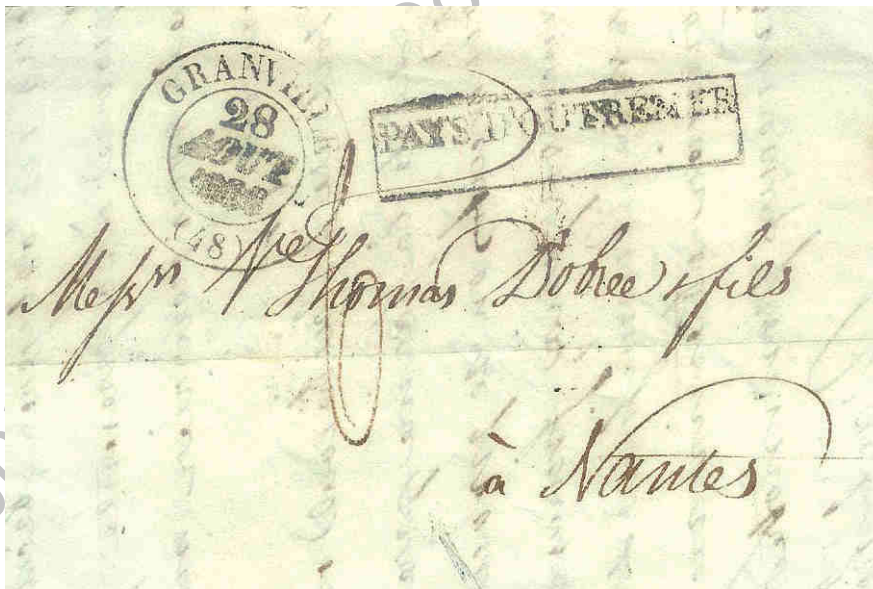 GRANVILLE
28
AOUT
(48)
PAYS D'OUTREMER
Messrs Ve Thomas Dobree & fils
à Nantes